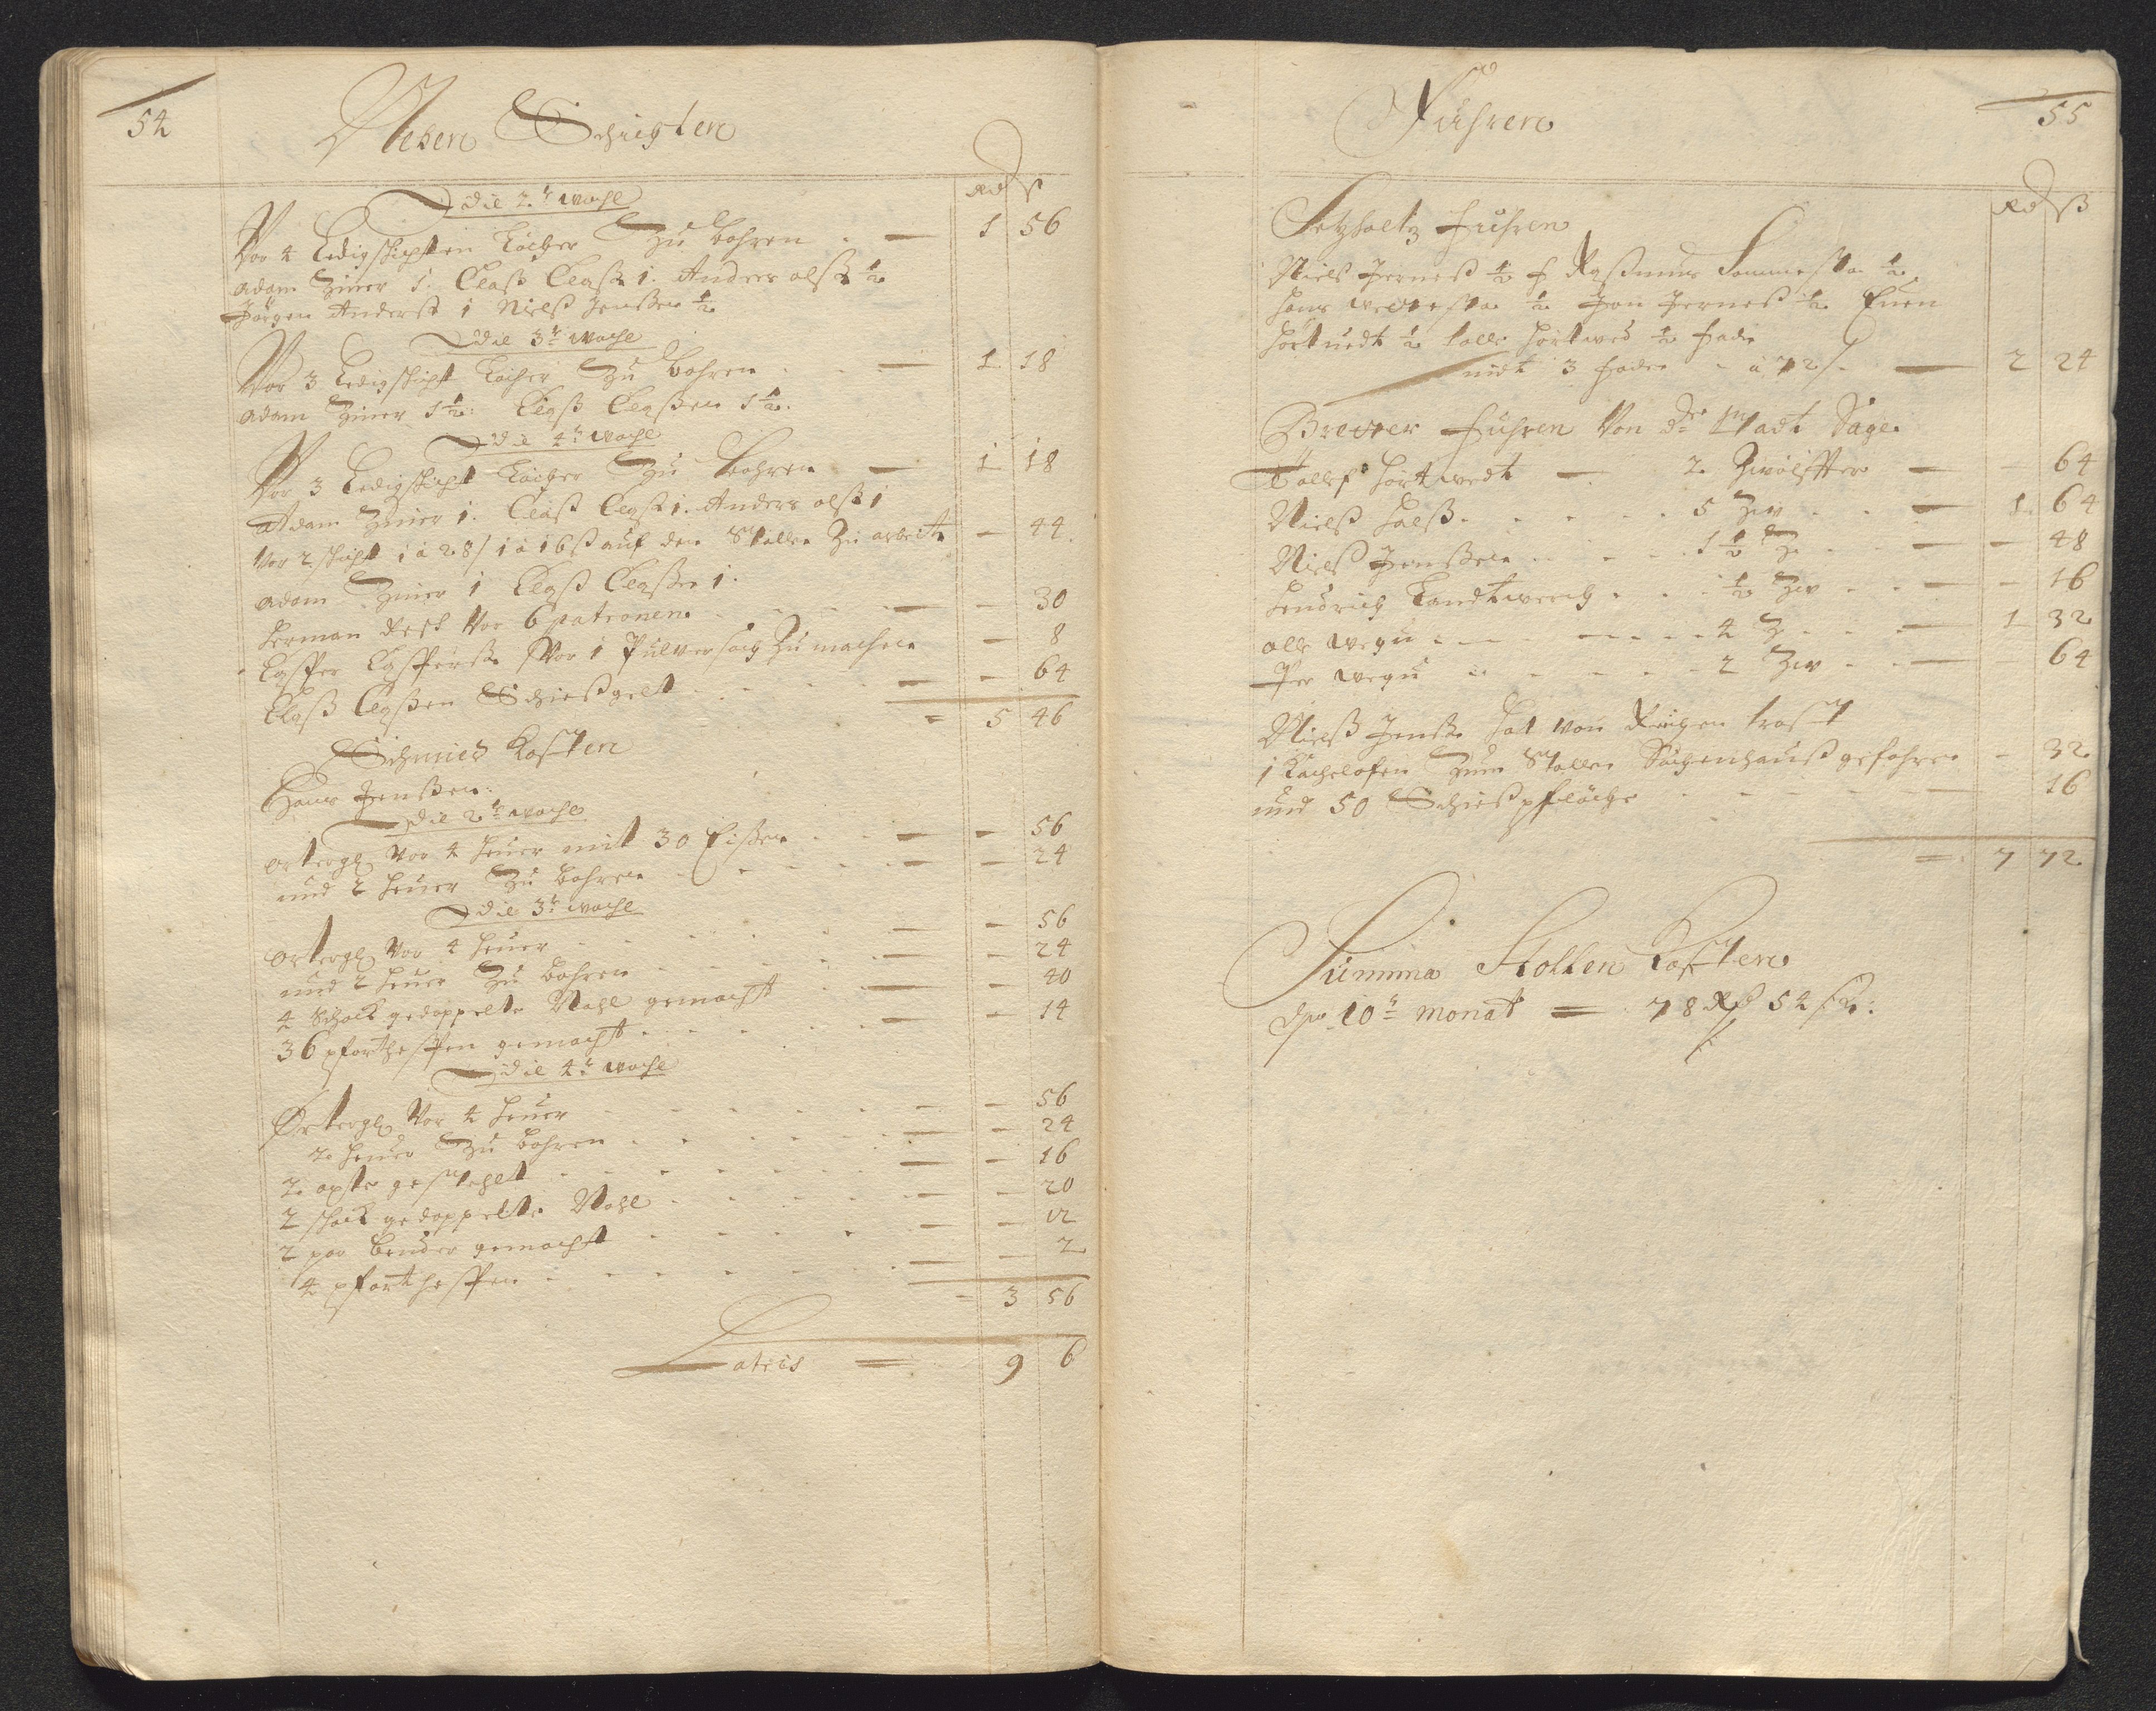 54
Neben Schigten
Rd ß
Die 2te woche
Vor 4 Ledigschichten Löcher Zu bohren - 1 56
Adam Ziner 1. Claß Claß: 1. Anders olß: ½
Jörgen Anderß: 1 Nielß Jenßen ½
Die 3te woche
Vor 3 Ledigschicht Löcher Zu bohren - 1 18
Adam Ziner 1½: Claß Claßen 1½.
Die 4te woche
Vor 3 Ledigschicht Löcher Zu Bohren - 1 18
Adam Ziner 1. Claß Claß: 1. Anders olß: 1
Vor 2 schicht 1 à 28/ 1 à 16 ß auf den Stollen Zu arbeit: - 44
Adam Ziner 1 Claß Claßen 1.
Herman Vor 6 patronen - 30
Casper Casperß: Vor 1 Pulversack Zu machen - 8
Claß Claßen Schießgelt - 64
= 5 46
Schmied Kosten
Hans Jenßen:
Die 2te woche
Vor 4 heuer mit 30 Eißen - 56
und 2 heuer Zu bohren - 24
Die 3te woche
Vor 4 heuer - 56
und 2 heuer Zu bohren - 24
4 Schock gedoppelte Nagel gemacht - 40
36 gemacht - 14
Die 4te woche
Vor 4 heuer - 56
2 heuer Zu bohren - 24
2 axte gestehlt - 16
2 schock gedoppelte Nagel - 20
2 par bender gemacht - 12
4 - 2
= 3 56
Lateris = 9 6
55
Fuhren
Rd ß
Setzholtz fuhren
Nielß Jerneß ½ f Raßmus ½
Hans ½ Jon Jerneß ½ Even
Hortvedt ½ Tolle Hortved ½ fade
nidt 3 faden à 72/ - 2 24
Bretter fuhren Von der Stadt Säge.
Tollef Hortvedt - 2 Zwölffter - 64
Nielß Halß - 5 Zw - 1 64
Nielß Jenßen - 1½ Z - 48
Hendrich Landtwerch - ½ Zw - 16
olle wegu - 4 Z - 1 32
Per wegu - 2 Zw - 64
Nielß Jenß: hat von
1 Kachelofen Zum Stollen Zächenhauß gefahren - 32
und 50 Schießpflöche - 16
= 7 72
Summa Stollen Kosten
Den 10te Monat = 78 Rd 54 ß: